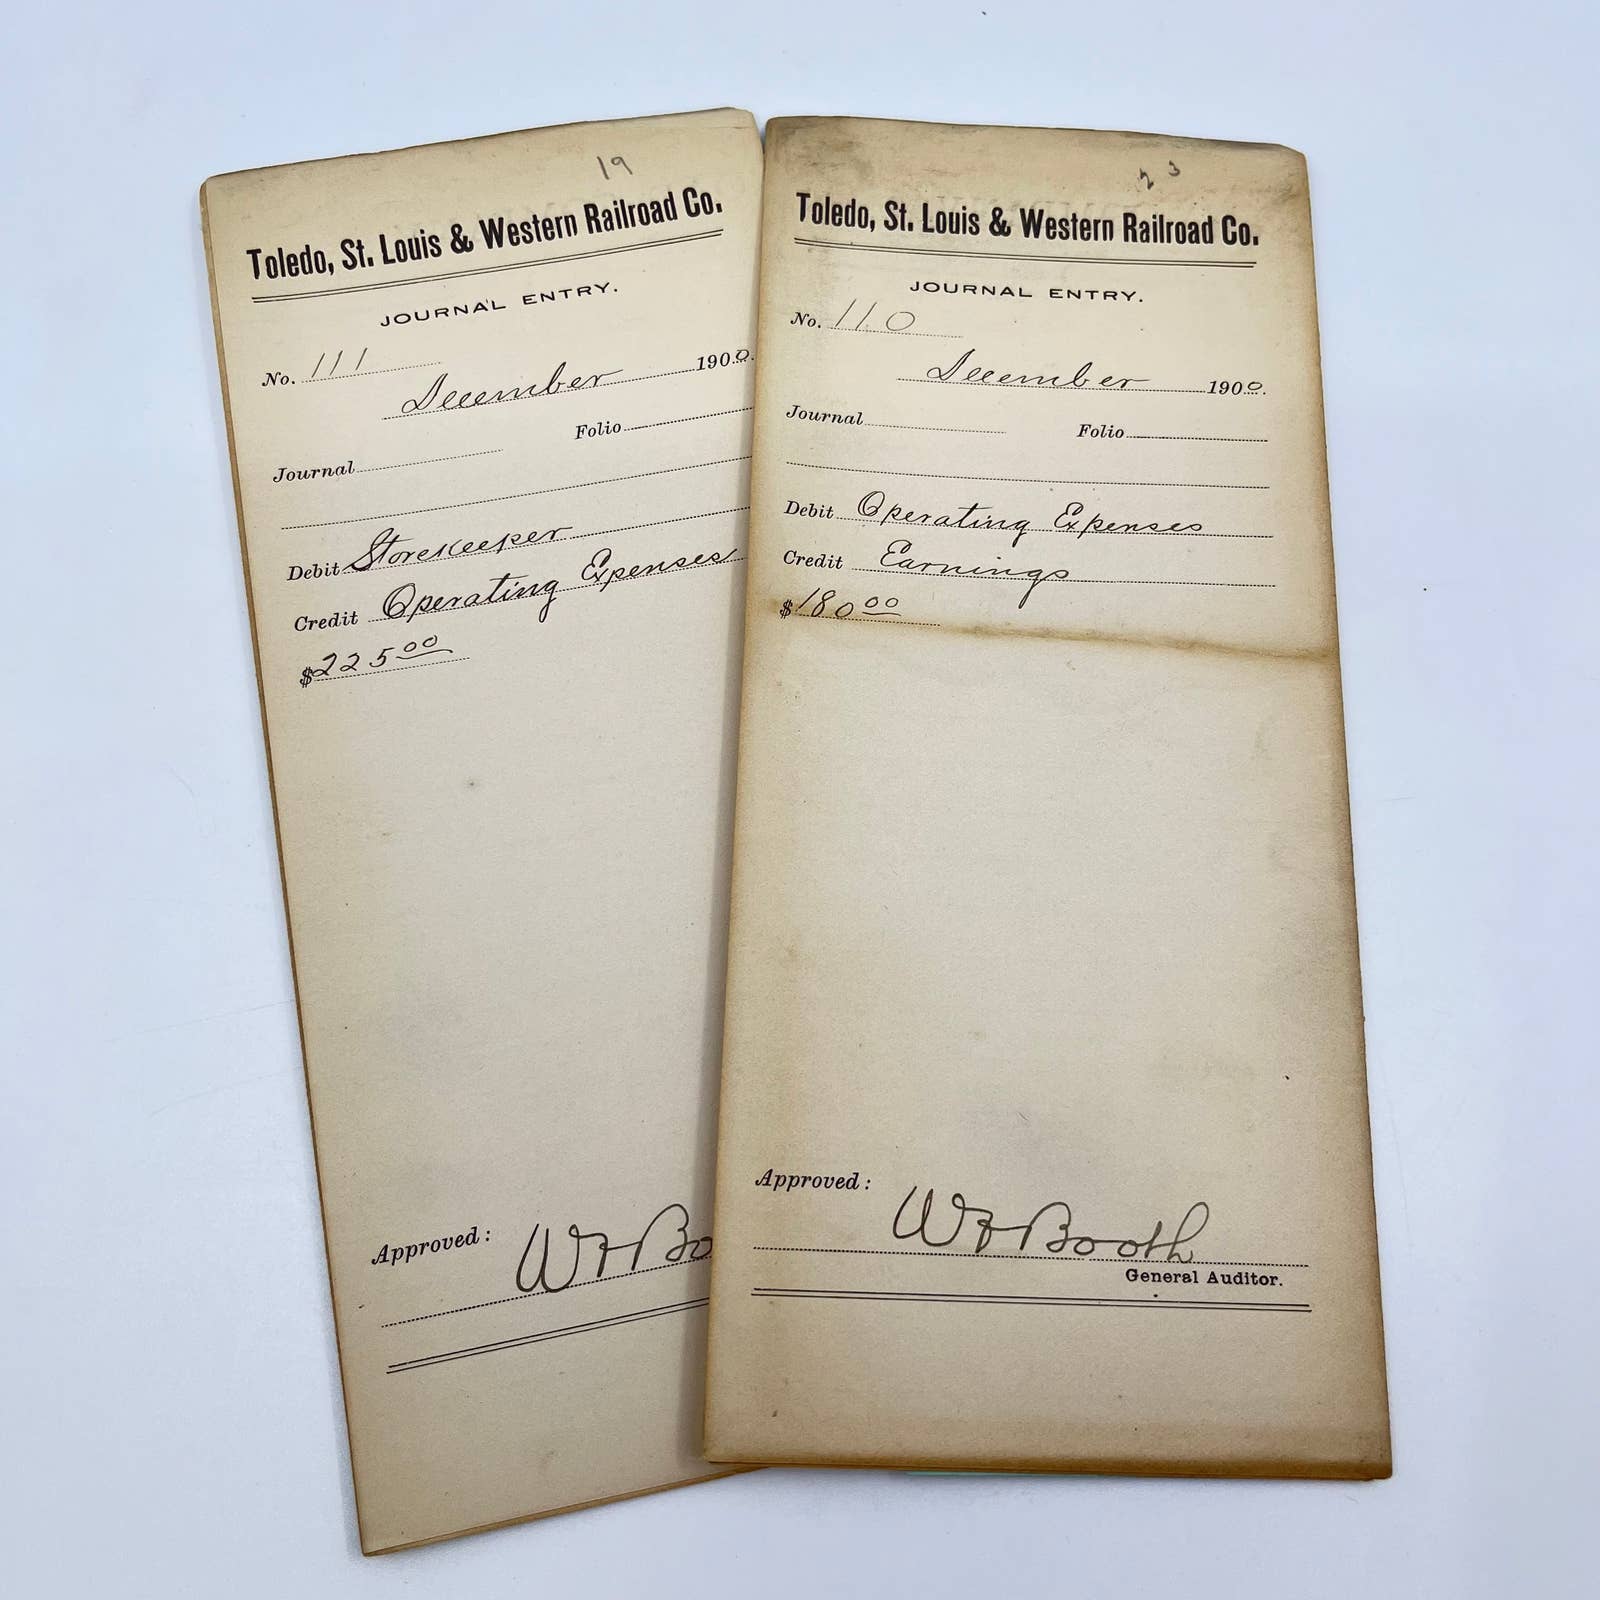 19
Toledo, St. Louis & Western Railroad Co.
JOURNAL ENTRY.
No. 111
December 1900.
Folio
Journal
Debit Storekeeper
Credit Operating Expenses
$225 00
Approved:
W F Bo
23
Toledo, St. Louis & Western Railroad Co.
JOURNAL ENTRY.
No. 110
December 1900.
Journal Folio
Debit Operating Expenses
Credit Earnings
$180 00
Approved:
W F Booth
General Auditor.